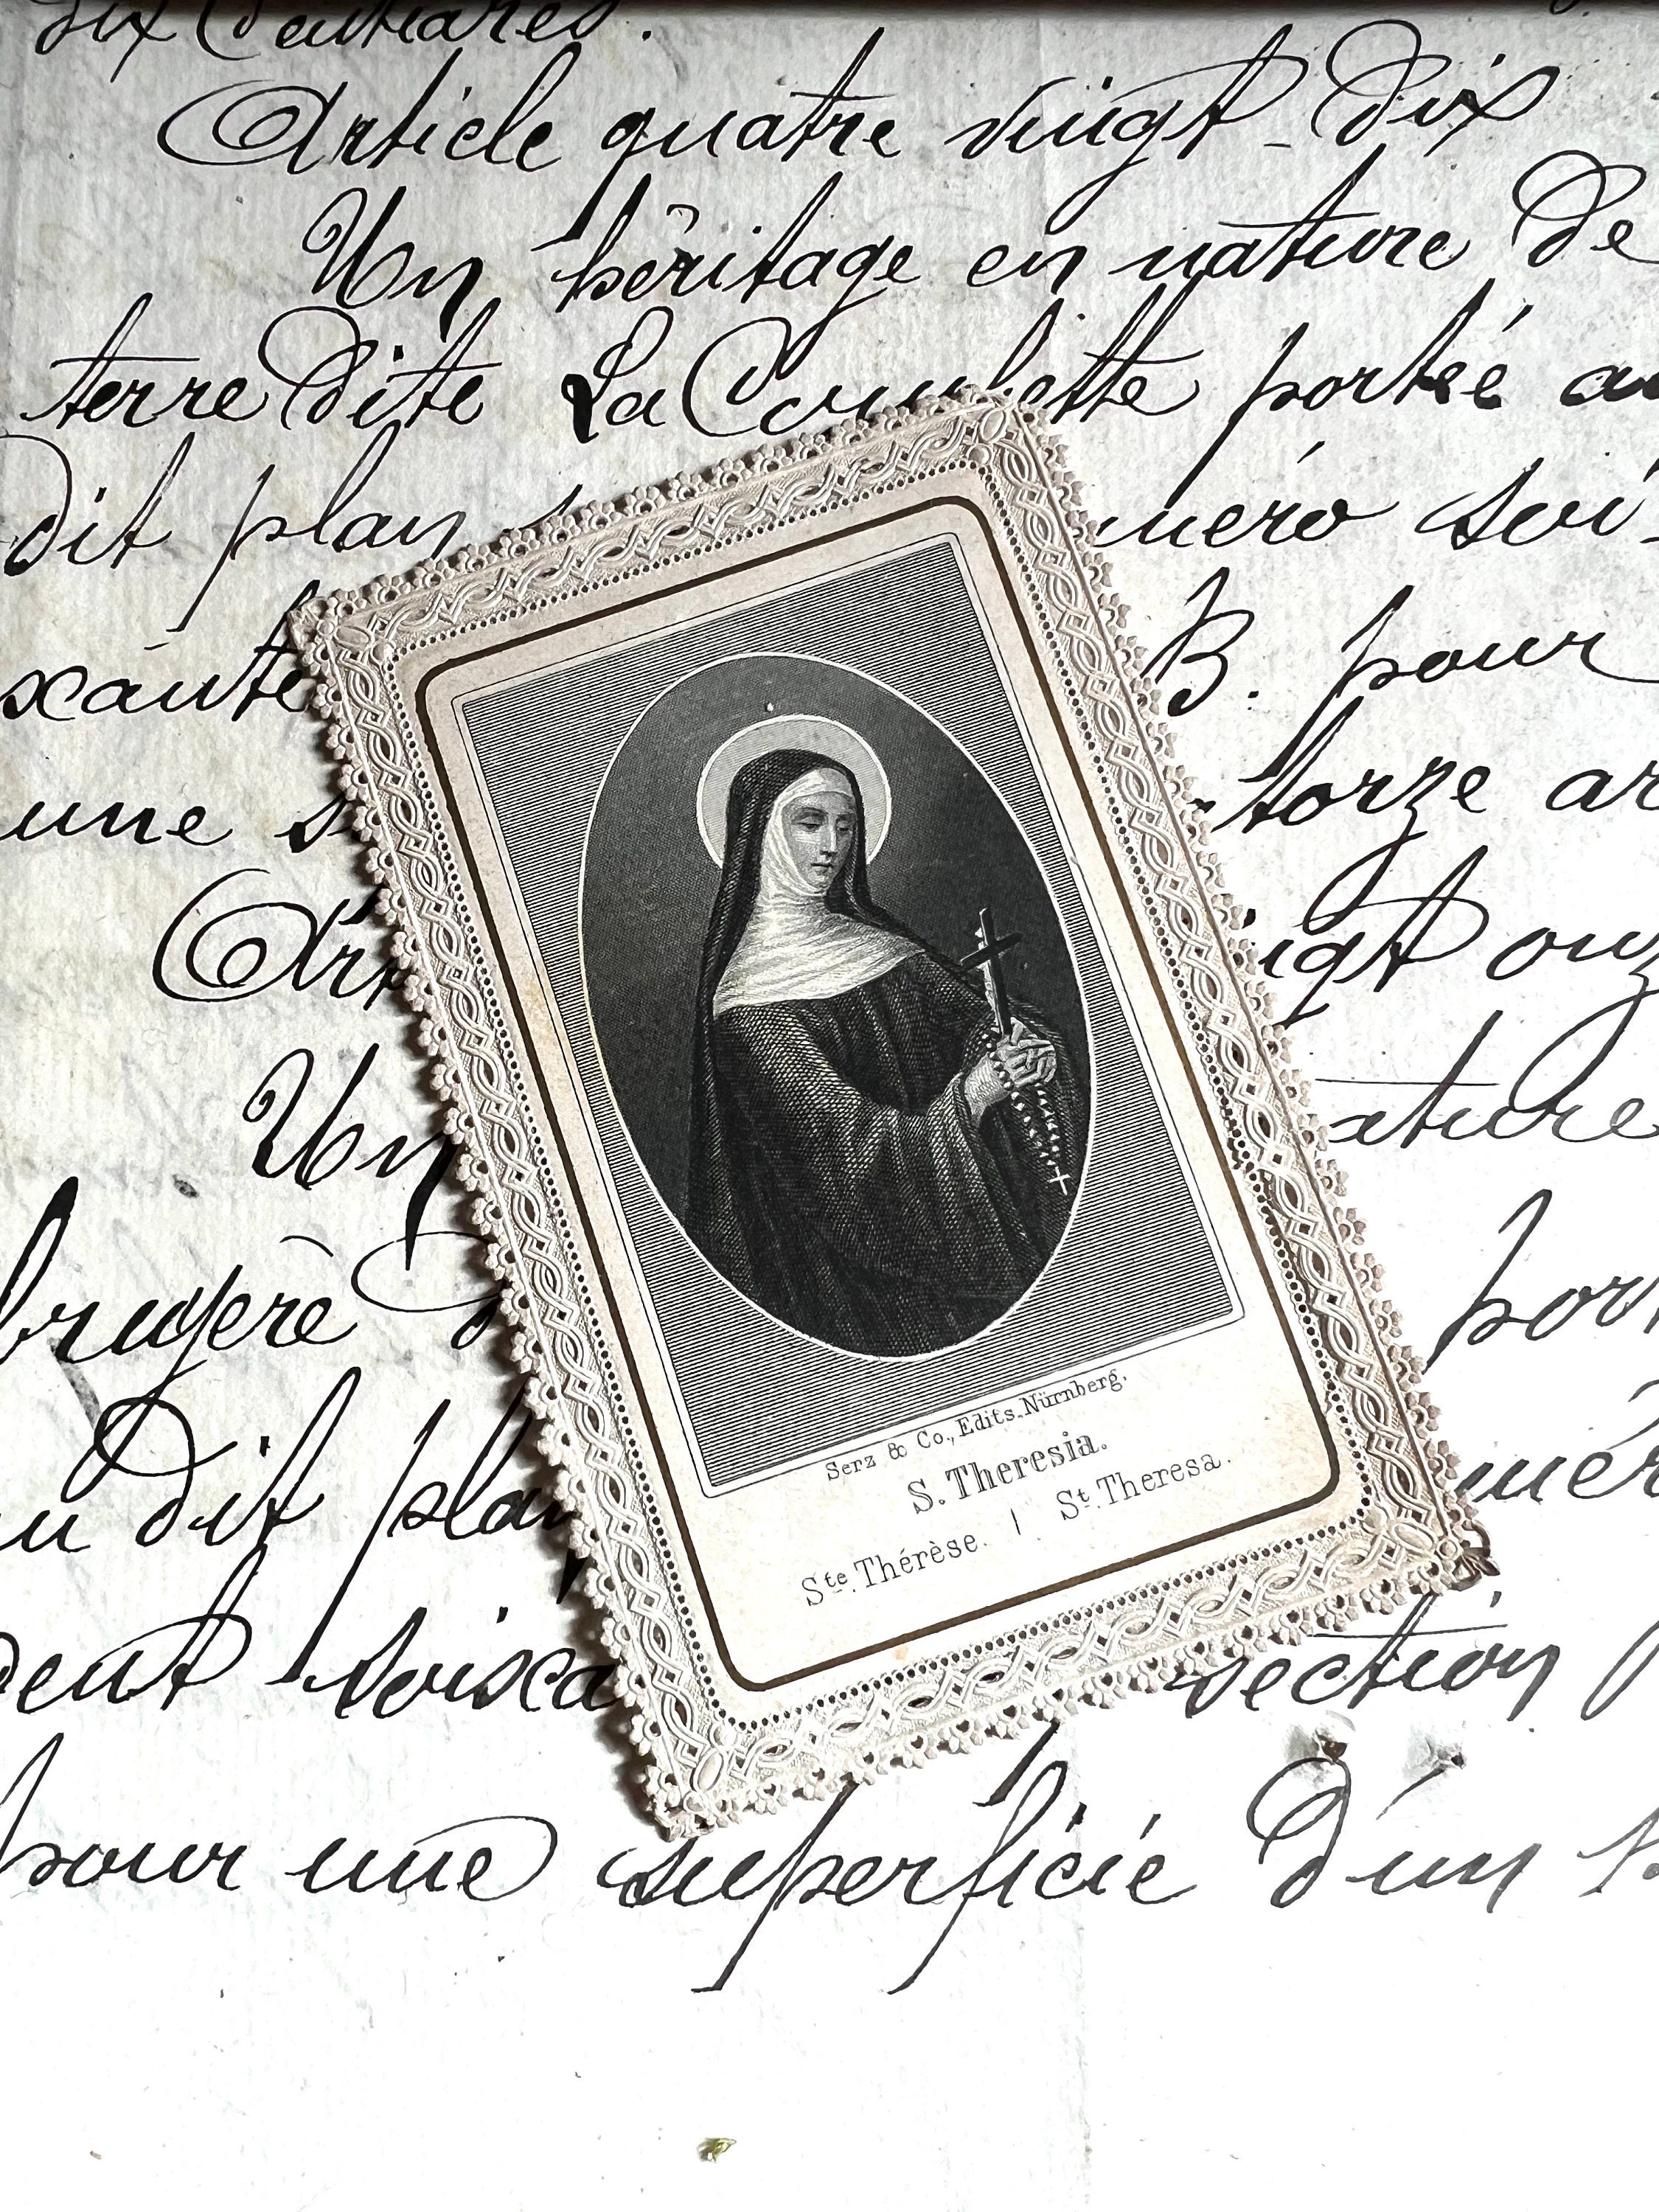 dix Centiares.
Article quatre vingt-dix
Un héritage en nature de
terre dite La portée au
dit plan méro soi-
xante B. pour
une torze ar
Art igt onz
Un ature
bruyère por
au dit plan mér
dent soixa section
pour une superficie d'un
Serz & Co., Edits. Nürnberg.
S. Theresia.
Ste. Thérèse. / St. Theresa.